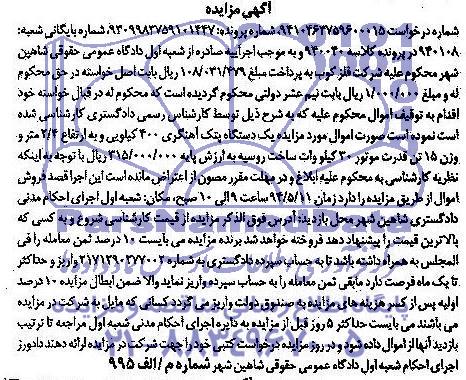 آگهی مزایده
شماره درخواست ۹۴۱۰۴۶۳۷۵۹۶۰۰۰۱۵ شماره پرونده: ۹۳۰۹۹۸۳۷۵۹۱۰۱۴۴۷ شماره بایگانی شعبه:
۹۴۰۱۰۸ در پرونده کلاسه ۹۳۰۰۴۰ و به موجب اجراییه صادره از شعبه اول دادگاه عمومی حقوقی شاهین
شهر محکوم علیه شرکت فلز کوب به پرداخت مبلغ ۱۰۸/۰۳۱/۳۷۹ ریال بابت اصل خواسته در حق محکوم
له و مبلغ ۱/۰۰۰/۰۰۰ ریال بابت نیم عشر دولتی محکوم گردیده است که محکوم له در قبال خواسته خود
اقدام به توقیف اموال محکوم علیه که به شرح ذیل توسط کارشناس رسمی دادگستری کارشناسی شده
است نموده است صورت اموال مورد مزایده یک دستگاه پتک آهنگری ۴۰۰ کیلویی و به ارتفاع ۲/۴ متر و
وزن ۱۵ تن قدرت موتور ۳۰ کیلو وات ساخت روسیه به ارزش پایه ۳۱۵/۰۰۰/۰۰۰ ریال با توجه به اینکه
نظریه کارشناسی به محکوم علیه ابلاغ و در مهلت مقرر مصون از اعتراض مانده است این اجرا قصد فروش
اموال از طریق مزایده را دارد زمان ۹۴/۵/۱۱ ساعت ۹ الی ۱۰ صبح، مکان: شعبه اول اجرای احکام مدنی
دادگستری شاهین شهر محل بازدید: آدرس فوق الذکر مزایده از قیمت کارشناسی شروع و به کسی که
بالاترین قیمت را پیشنهاد دهد فروخته خواهد شد برنده مزایده می بایست ۱۰ درصد ثمن معامله را فی
المجلس به همراه داشته باشد تا به حساب سپرده دادگستری به شماره ۲۱۷۱۳۹۰۲۷۷۰۰۲ واریز و حداکثر
تا یک ماه فرصت دارد مابقی ثمن معامله را به حساب سپرده واریز نماید والا ضمن ابطال مزایده ۱۰ درصد
اولیه پس از کسر هزینه های مزایده به صندوق دولت واریز می گردد کسانی که مایل به شرکت در مزایده
می باشند می بایست حداکثر ۵ روز قبل از مزایده به دایره اجرای احکام مدنی شعبه اول مراجعه تا ترتیب
بازدید آنها از اموال داده شود و در روز مزایده درخواست کتبی خود را جهت شرکت در مزایده ارائه دهند دادورز
اجرای احکام شعبه اول دادگاه عمومی حقوقی شاهین شهر شماره م/الف ۹۹۵